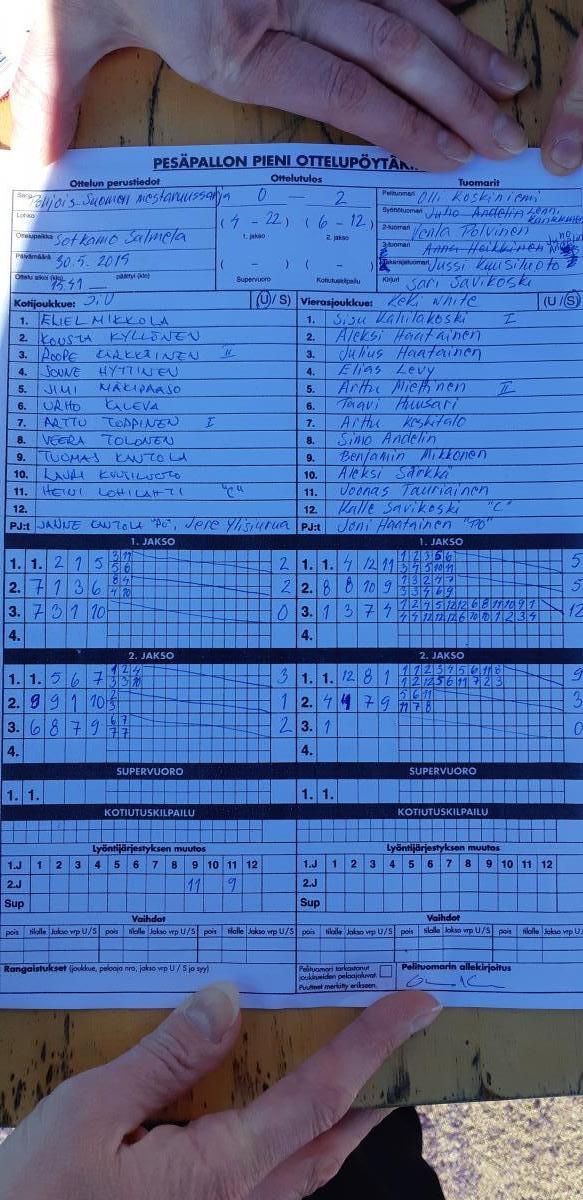 PESÄPALLON PIENI OTTELUPÖYTÄK
Ottelun perustiedot
Sarja Pohjois-Suomen mestaruussarja
Lohko
Ottelupaikka Sotkamo Salmela
Päivämäärä 30.5.2019
Ottelu alkoi (klo) 15.41 päättyi (klo)
Ottelutulos
0 — 2
(4 - 22) (6 - 12)
1. jakso 2. jakso
( - ) ( - )
Supervuoro Kotiutuskilpailu
Tuomarit
Pelituomari Olli Koskiniemi
Syöttötuomari Juho Andelin
2-tuomari Venla Polvinen
3-tuomari Anna Heikkinen
Takarajatuomari Jussi Kuusiluoto
Kirjuri Sari Savikoski
Kotijoukkue: SiU (U/S)
1. ELIEL MIKKOLA
2. KONSTA KYLLÖNEN
3. ROOPE KARKKAINEN II
4. JONNE HYTTINEN
5. JIMI MÄKIPAASO
6. URHO KALEVA
7. ARTTU TOPPINEN I
8. VEERA TOLONEN
9. TUOMAS KANTOLA
10. LAURI KUUSILUOTO
11. HEIDI LOHILAHTI "C"
12.
PJ:t JANNE KANTOLA "PÖ", Jere Ylisiurua
Vierasjoukkue: Keki White (U/S)
1. Sisu Kallakoski I
2. Aleksi Haatainen
3. Julius Haatainen
4. Elias Levy
5. Arttu Miettinen II
6. Taavi Huusari
7. Arttu Koskitalo
8. Simo Andelin
9. Benjamin Mikkonen
10. Aleksi Särkkä
11. Joonas Tauriainen
12. Kalle Savikoski "C"
PJ:t Joni Haatainen "PÖ"
1. JAKSO
1. 1. 2 1 5 3 11 2
5 6
2. 7 1 3 6 8 4 2
4 10
3. 7 3 1 10 0
4.
1. JAKSO
1. 1. 4 12 11 1 2 3 5 6 5
3 4 5 10 11
2. 8 8 10 9 1 3 2 4 7 5
3 3 4 6 9
3. 1 3 7 4 1 2 4 5 12 12 6 8 11 10 9 1 12
4 4 12 12 12 6 10 10 1 2 3 4
4.
2. JAKSO
1. 1. 5 6 7 1 2 4 3
3 3 11
2. 9 9 1 10 2 1
3
3. 6 8 7 9 6 7 2
7 7
4.
2. JAKSO
1. 1. 12 8 1 1 1 2 3 4 5 6 11 8 9
1 2 12 5 6 11 7 2 3
2. 4 4 7 9 5 6 11 3
11 7 8
3. 1 0
4.
SUPERVUORO
1. 1.
SUPERVUORO
1. 1.
KOTIUTUSKILPAILU
KOTIUTUSKILPAILU
Lyöntijärjestyksen muutos
1.J 1 2 3 4 5 6 7 8 9 10 11 12
2.J 11 9
Sup
Lyöntijärjestyksen muutos
1.J 1 2 3 4 5 6 7 8 9 10 11 12
2.J
Sup
Vaihdot
pois tilalle Jakso vrp U/S pois tilalle Jakso vrp U/S pois tilalle Jakso vrp U/S
Vaihdot
pois tilalle Jakso vrp U/S pois tilalle Jakso vrp U/S pois tilalle Jakso vrp U/S
Rangaistukset (joukkue, pelaaja nro, jakso vrp U / S ja syy)
Pelituomari tarkastanut
joukkueiden pelaajaluvat.
Puutteet merkitty erikseen.
Pelituomarin allekirjoitus